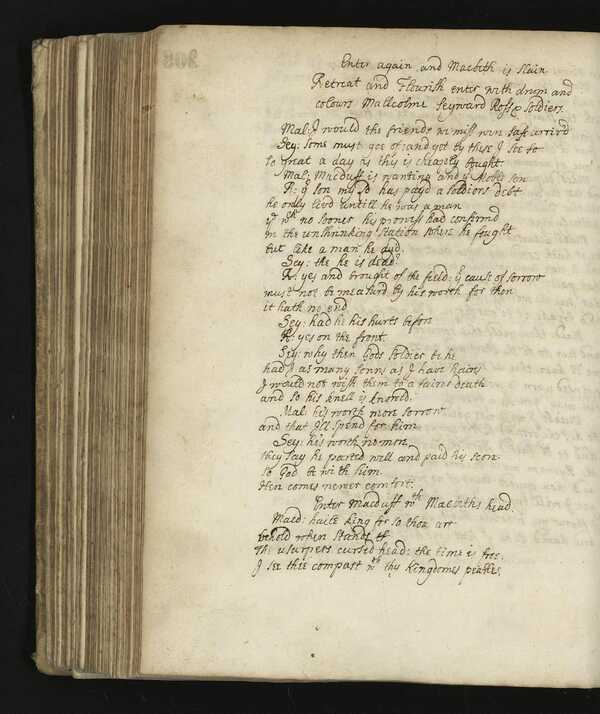 Enter again and Macbeth is slain
Retreat and Flourish enter with drum and
colours Mallcolme Seyward Rosse & Soldiers.
Mal: I would the friends we miss were safe arrivd
Sey: some must goe of: and yet by these I see so
so great a day as this is cheaply bought
Mal: Macduff is wanting and yr Noble son
R: yr son my Ld has payd a soldiers debt
he only livd untill he was a man
ye wch no sooner his prowess had confirmd
in the unshrinking station where he fought
but like a man he dyd.
Sey: the he is dead?
R: yes and brought of the field: yr cause of sorrow
must not be measurd by his worth for then
it hath no end
Sey: had he his hurts before
R: yes on the front.
Sey: why then Gods soldier be he
had I as many sonns as I have hairs
I would not wish them to a fairer death
and so his knell is knowld.
Mal: he's worth more sorrow
and that I'll spend for him
Sey: he's worth no more,
they say he parted well and paid his score
so God be with him.
Here comes newer comfort:
Enter Macduff wth Macbeths head.
Macd: haile king for so thou art
behold where stands
The usurpers cursed head: the time is free:
I see thee compast wth thy kingdomes pearles,